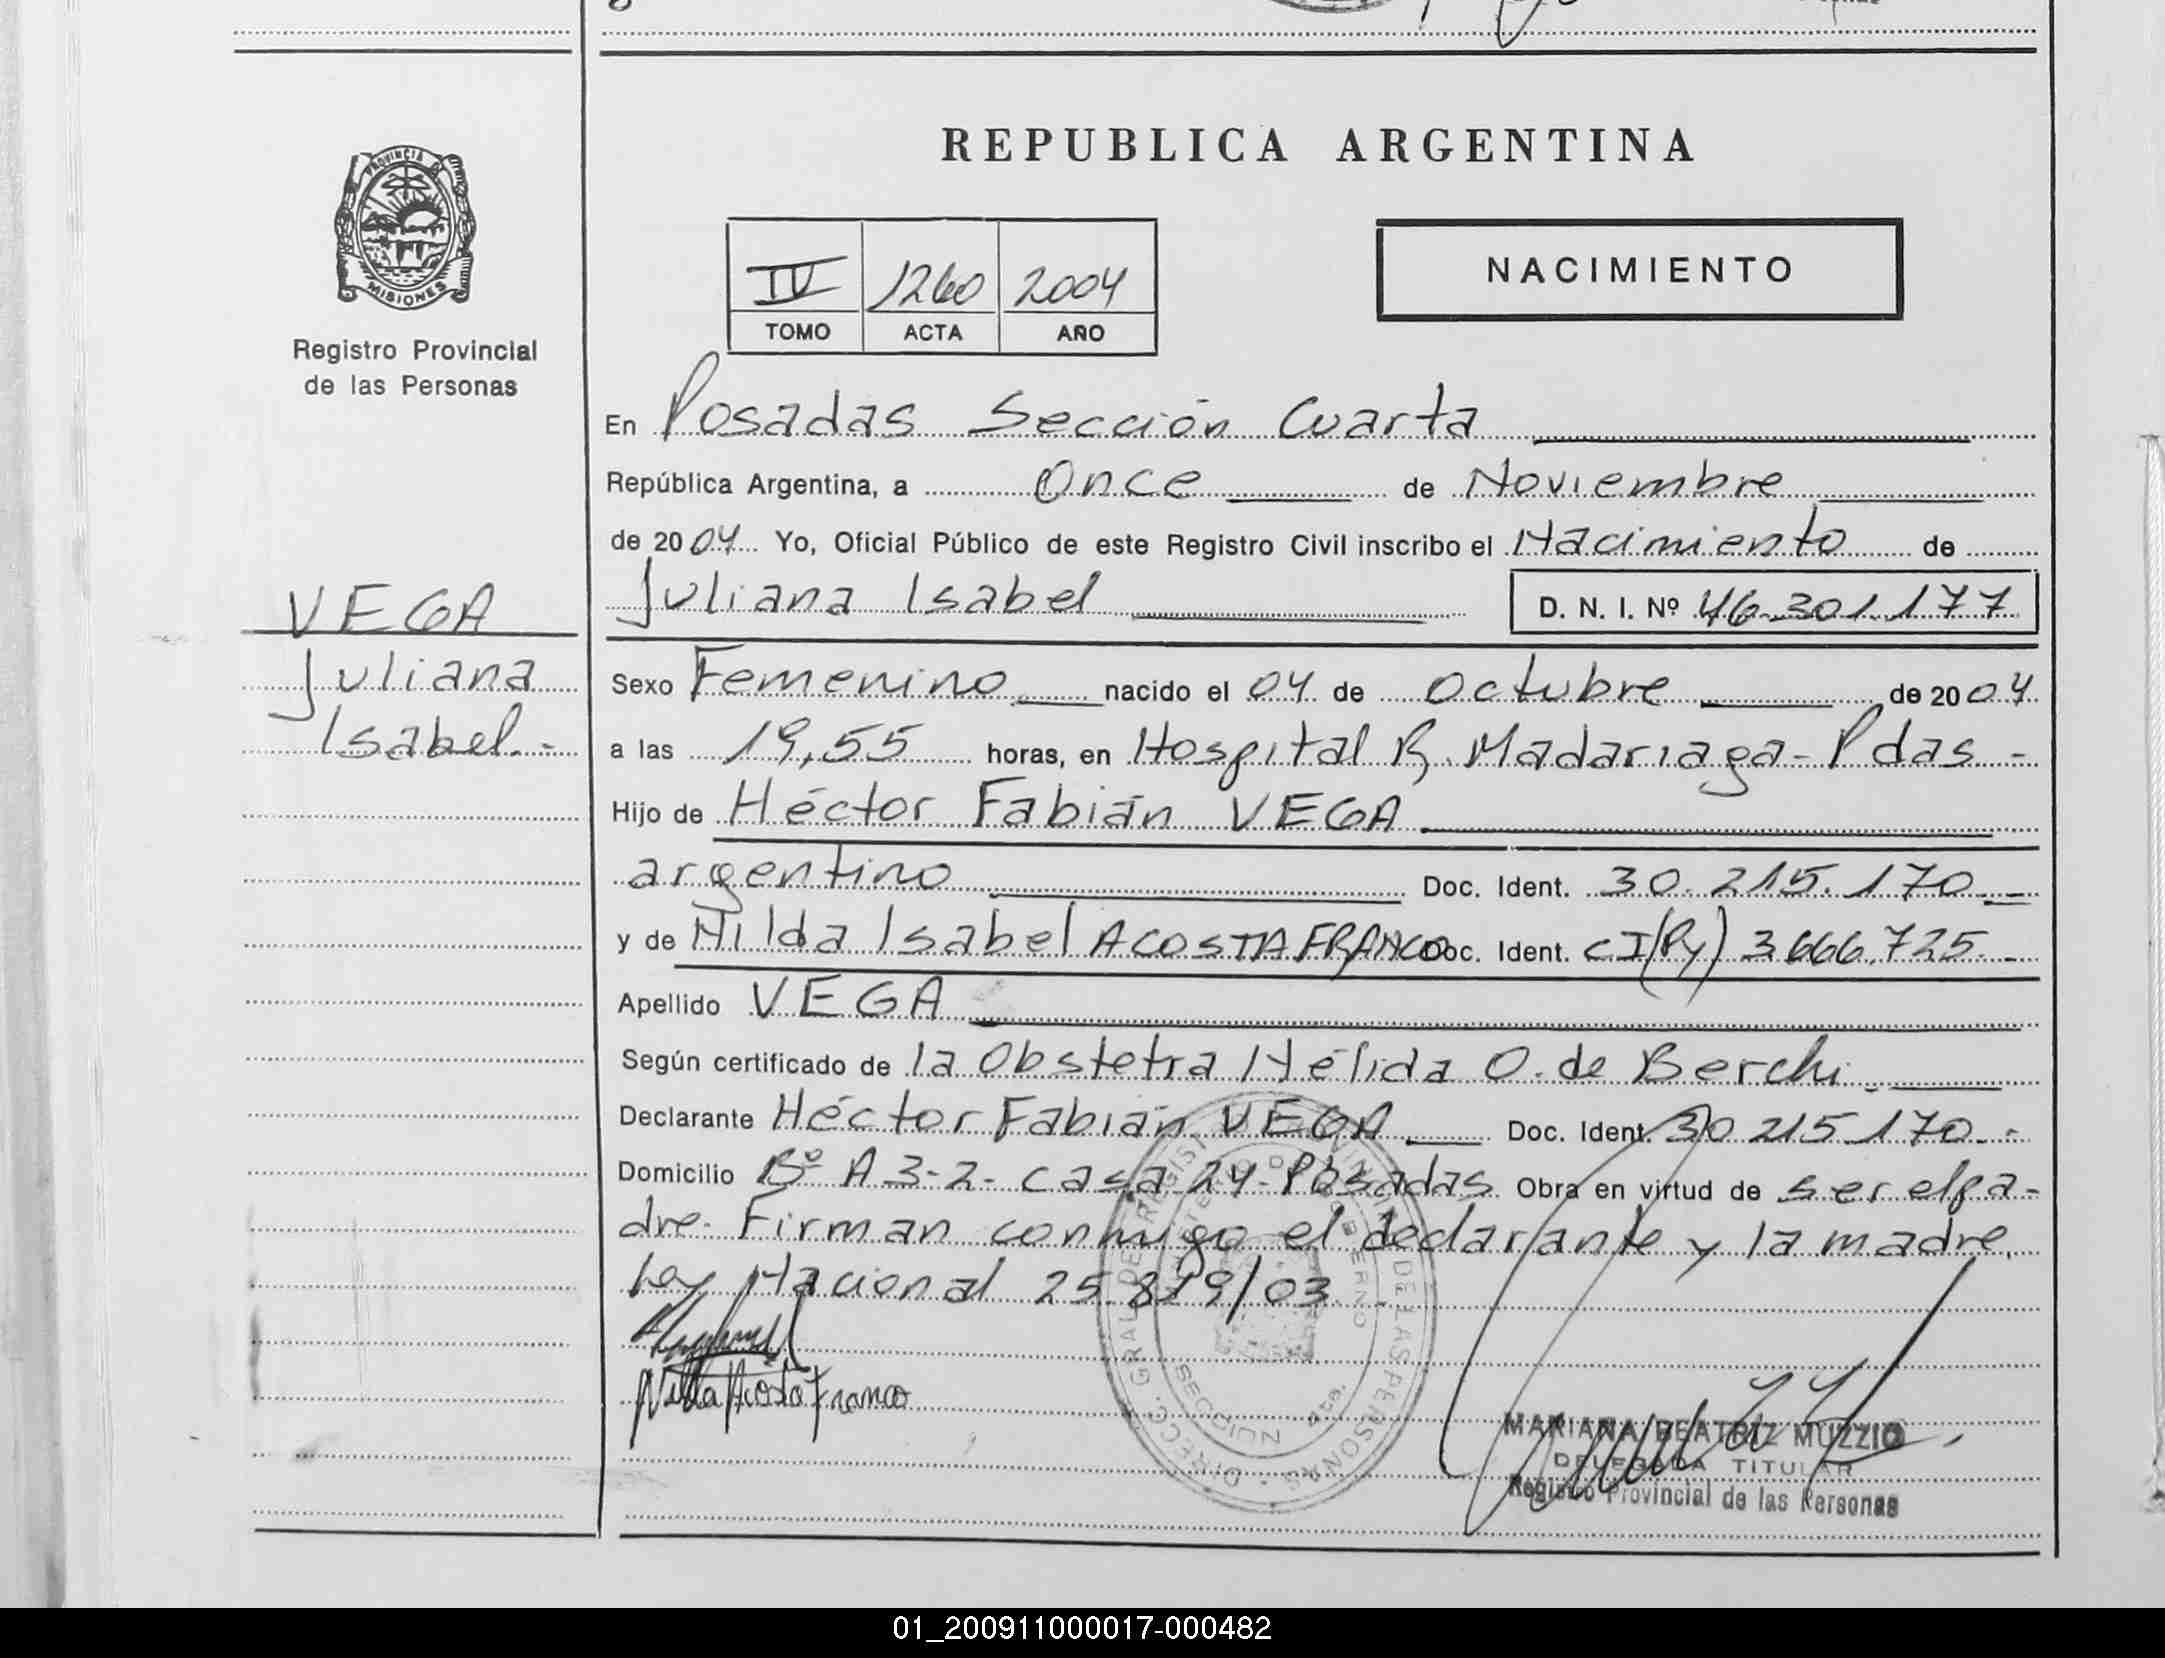 REPUBLICA ARGENTINA
PROVINCIA DE
MISIONES
Registro Provincial
de las Personas
IV 1260 2004
TOMO ACTA AÑO
NACIMIENTO
En Posadas Sección Cuarta
República Argentina, a Once de Noviembre
de 2004 Yo, Oficial Público de este Registro Civil inscribo el Nacimiento de
Juliana Isabel D. N. I. Nº 46.301.177
VEGA
Juliana
Isabel.-
Sexo Femenino nacido el 04 de octubre de 2004
a las 19,55 horas, en Hospital R. Madariaga-Pdas-
Hijo de Héctor Fabián VEGA
argentino Doc. Ident. 30.215.170
y de Nilda Isabel ACOSTA FRANCO Doc. Ident. CI(Py) 3.666.725.-
Apellido VEGA
Según certificado de la Obstetra Nélida O. de Berchi.
Declarante Héctor Fabián VEGA Doc. Ident. 30 215 170.-
Domicilio Bº A 3-2- casa 24-Posadas Obra en virtud de ser el pa-
dre. Firman conmigo el declarante y la madre.
Ley Nacional 25.819/03.
Nilda Acosta Franco
DIRECC. GRAL DE REGISTRO PROVINCIAL DE LAS PERSONAS
MINISTERIO DE GOBIERNO
SECCION 4ta.
MARIANA BEATRIZ MUZZIO
DELEGADA TITULAR
Registro Provincial de las Personas
01_200911000017-000482